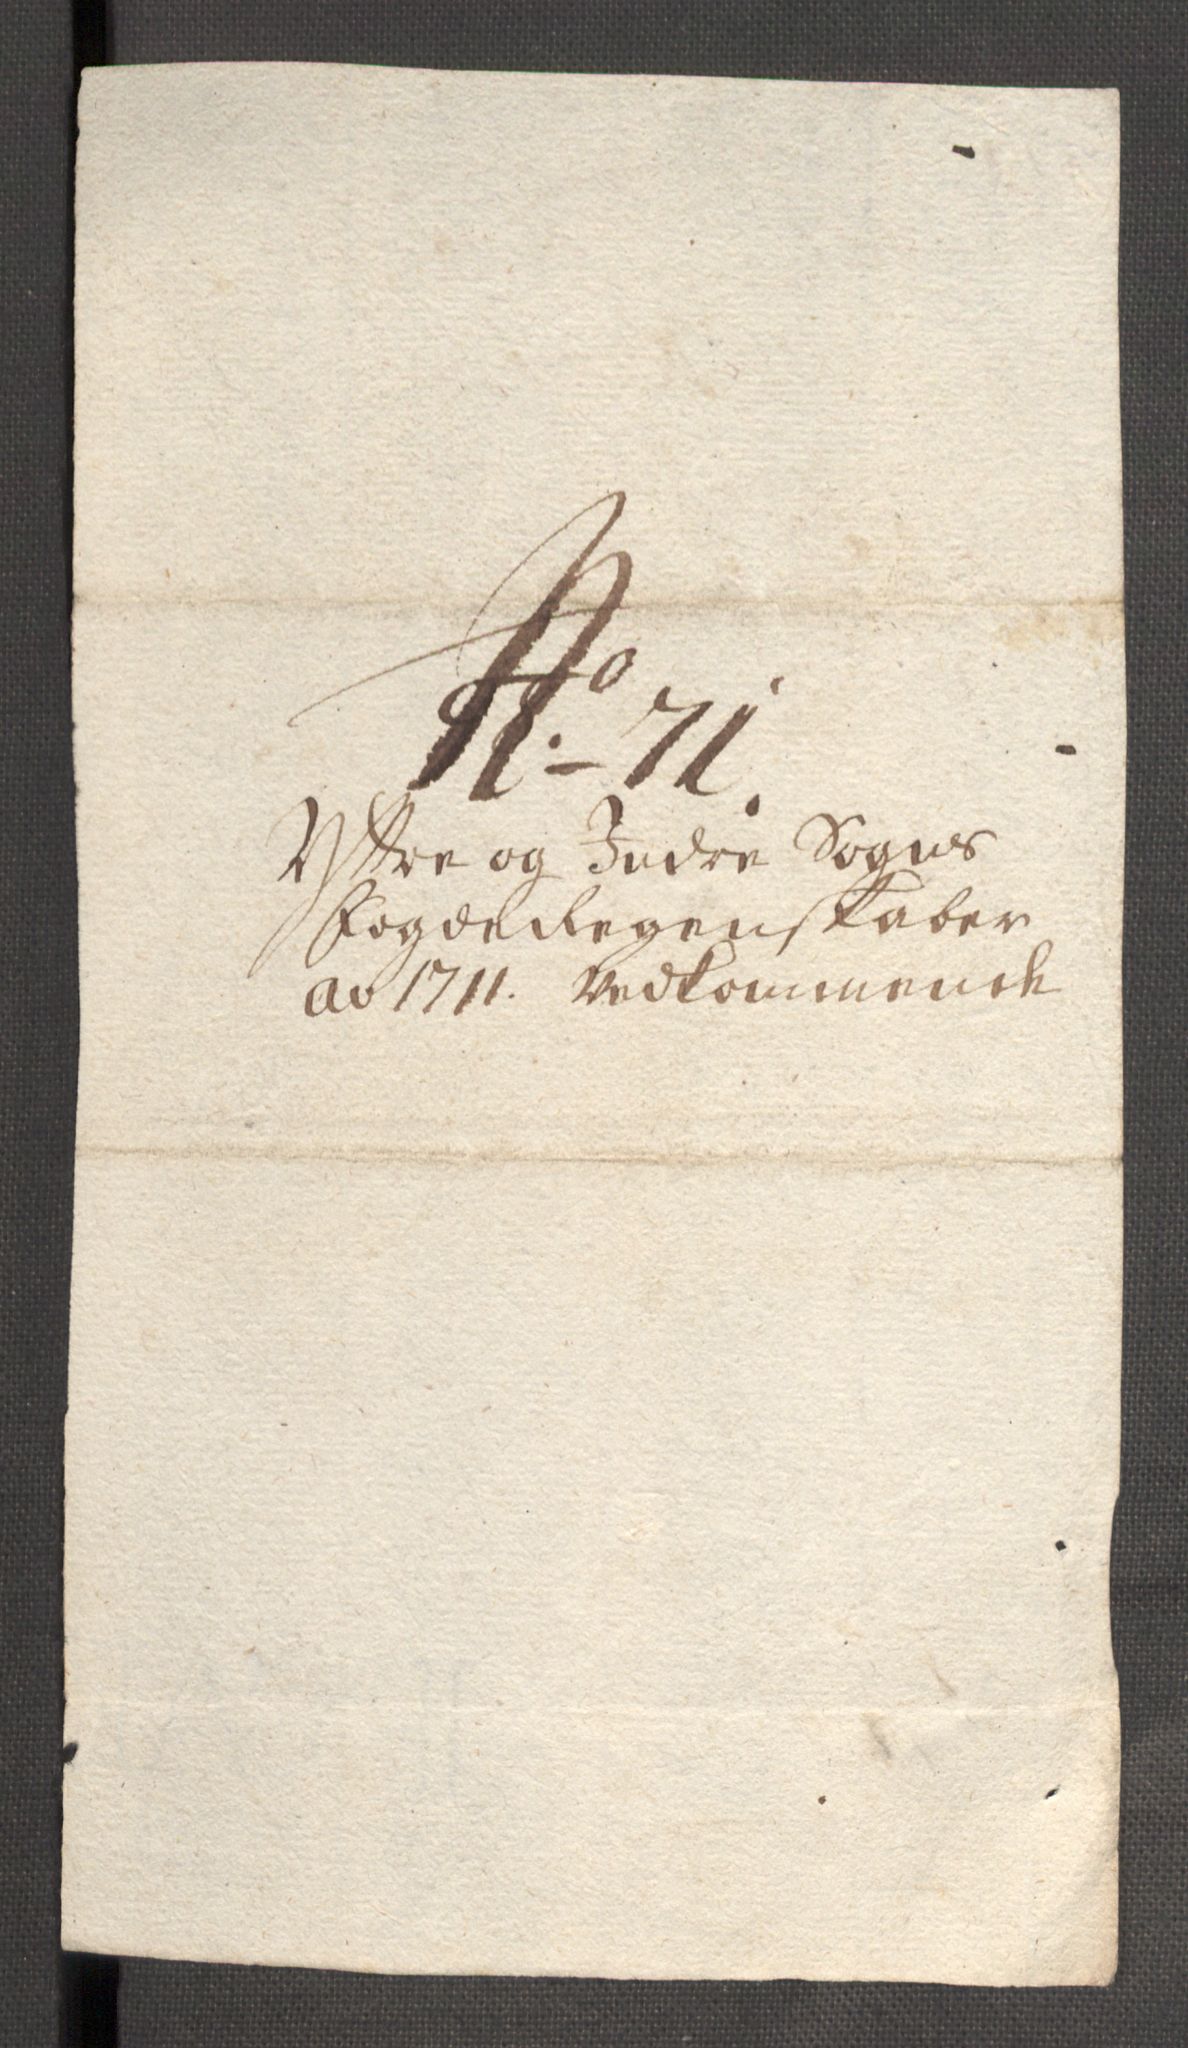 No. 71.
Yttre og Indre Sogns
Fogderegenskaber
Ao 1711. Vedkommende